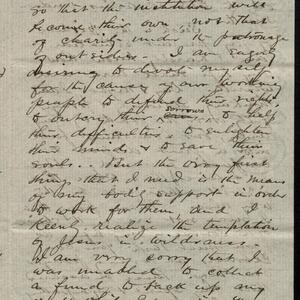 so that the institution will
become their own not that
of charity under the patronage
of outsiders. I am eagerly
desiring to divote myself
for the cause of our working
people to defend their rights
to outcry their sorrows to help
their difficulties to enlighten
their minds & to save their
souls. But the very first
thing that I need is the means
of my body's support in order
to work for them, and I
keenly realize the temptation
of Jesus in wilderness.
I am very sorry that I
was unable to collect
a fund to back up any